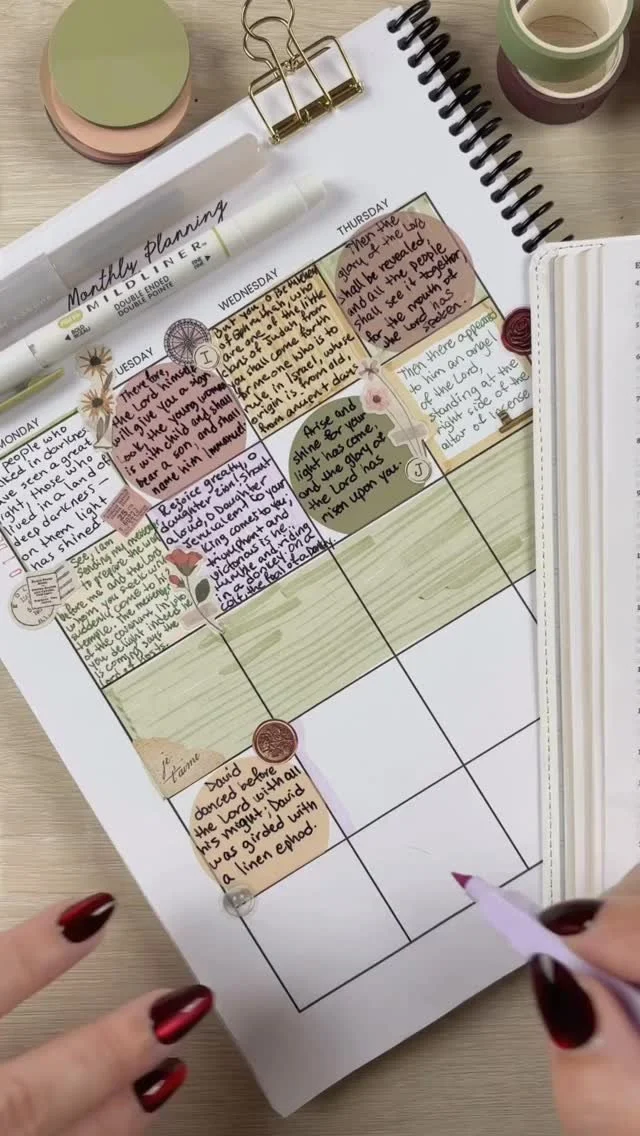 Monthly Planning
MILDLINER™
DOUBLE ENDED
DOUBLE POINTE
MONDAY
UESDAY
WEDNESDAY
THURSDAY
people who
ked in darkness
ve seen a great
light, those who
lived in a land of
deep darkness –
on them light
has shined
Therefore,
the Lord himself
will give you a sign
look the young woman
is with child and shall
bear a son, and shall
name him Immanuel.
I
But you, O Bethlehem
of Ephrathah, who
are one of the little
clans of Judah, from
you shall come forth
for me one who is to
rule in Israel, whose
origin is from old,
from ancient days
Then the
glory of the Lord
shall be revealed
and all the people
shall see it together,
for the mouth of
the Lord has
spoken
See, I am
sending my messenger
to prepare the way
before me and the Lord
whom you seek will
suddenly come to his
temple. The messenger
of the covenant in whom
you delight indeed he
is coming says the
Lord of hosts
Rejoice greatly, O
daughter Zion! Shout
aloud, O Daughter
Jerusalem! to you
king comes to you,
triumphant and
victorious is he,
humble and riding
in a donkey, on a
colt, the foal of a donkey.
Arise and
shine for your
light has come,
and the glory of
the Lord has
risen upon you.
J
Then there appeared
to him an angel
of the Lord,
standing at the
right side of the
altar of incense
je
t'aime
David
danced before
the Lord with all
his might; David
was girded with
a linen ephod.